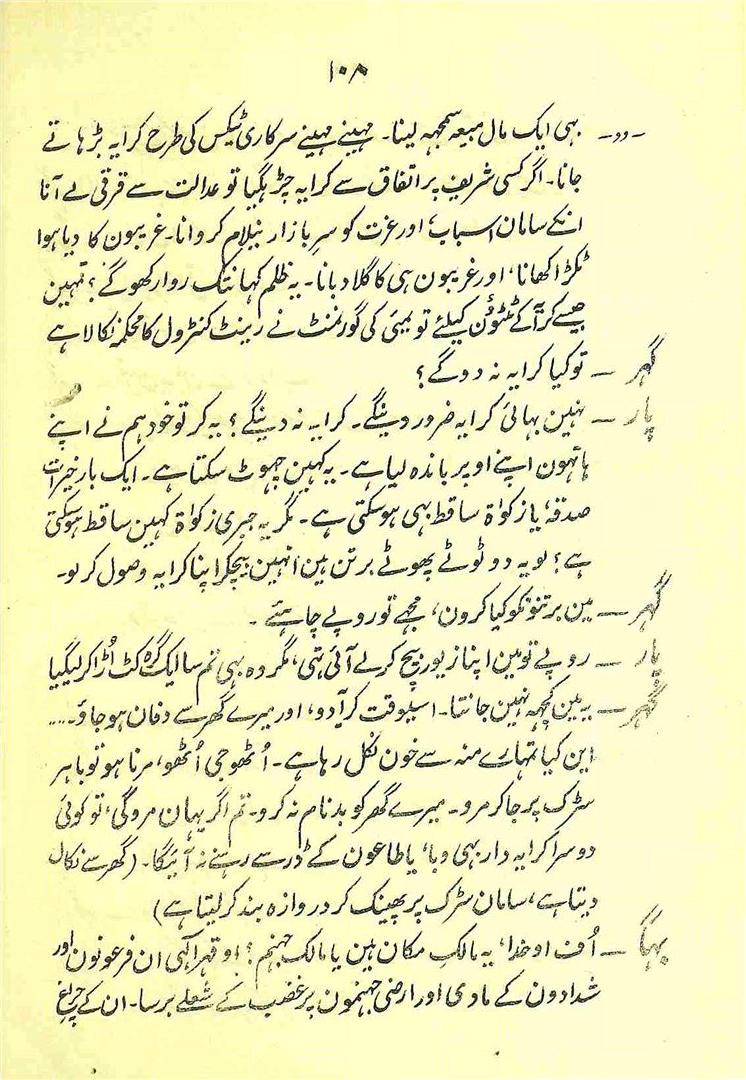 ۱۰۸
۔دو۔ بہی ایک مال مبیعہ سمجہہ لینا۔ مہینے مہینے سرکاری ٹیکس کی طرح کرایہ بڑہاتے
جانا۔ اگر کسی شریف پر اتفاق سے کرایہ چڑہگیا تو عدالت سے قرقی لے آنا
انکے سامان اسباب، اور عزت کو سرِ بازار نیلام کروانا۔ غریبون کا دیا ہوا
ٹکڑا کھانا، اور غریبون ہی کا گلا دبانا۔ یہ ظلم کہانتک روا رکھو گے؟ تمہین
جیسے کرآکے ٹٹوؤن کیلئے تو بمبئی کی گورمنٹ نے رینٹ کنٹرول کا محکمہ نکالا ہے
گہر — تو کیا کرایہ نہ دو گے؟
پار — نہین بہائی کرایہ ضرور دینگے۔ کرایہ نہ دینگے؟ یہ کر تو خود ہم نے اپنے
ہاتہون اپنے اوپر باندہ لیا ہے۔ یہ کہین چہوٹ سکتا ہے۔ ایک بار خیرات
صدقہ یا زکواۃ ساقط بہی ہوسکتی ہے۔ مگر یہ جبری زکواۃ کہین ساقط ہوسکتی
ہے؛ لو یہ دو ٹوٹے پھوٹے برتن ہین اُنہین بیچکر اپنا کرایہ وصول کر لو۔
گہر — مین برتنونکو کیا کرون، مجہے تو روپے چاہئے۔
پار — روپے تو مین اپنا زیور بیچ کر لے آئی تہی، مگر وہ بہی تم سا ایک گرہ کٹ اُڑا کر لیگیا
گہر — یہ مین کچہہ نہین جانتا۔ اسیوقت کرآ دو، اور میرے گھر سے دفان ہو جاؤ.....
این کیا تمہارے منہ سے خون نکل رہا ہے۔ اُٹھو جی اُٹھو، مرنا ہو تو باہر
سڑک پر جا کر مرو۔ میرے گھر کو بدنام نہ کرو۔ تم اگر یہان مروگی، تو کوئی
دوسرا کرایہ دار بہی وبا، یا طاعون کے ڈر سے رہنے نہ آئیگا۔ (گھر سے نکال
دیتا ہے، سامان سڑک پر پھینک کر دروازہ بند کر لیتا ہے)
بہاگ — اُف او خدا، یہ مالکِ مکان ہین یا مالکِ جہنم؟! او قہر الٰہی ان فرعونون اور
شدادون کے مادی اور ارضی جہنمون پر غضب کے شعلے برسا۔ ان کے چراغ